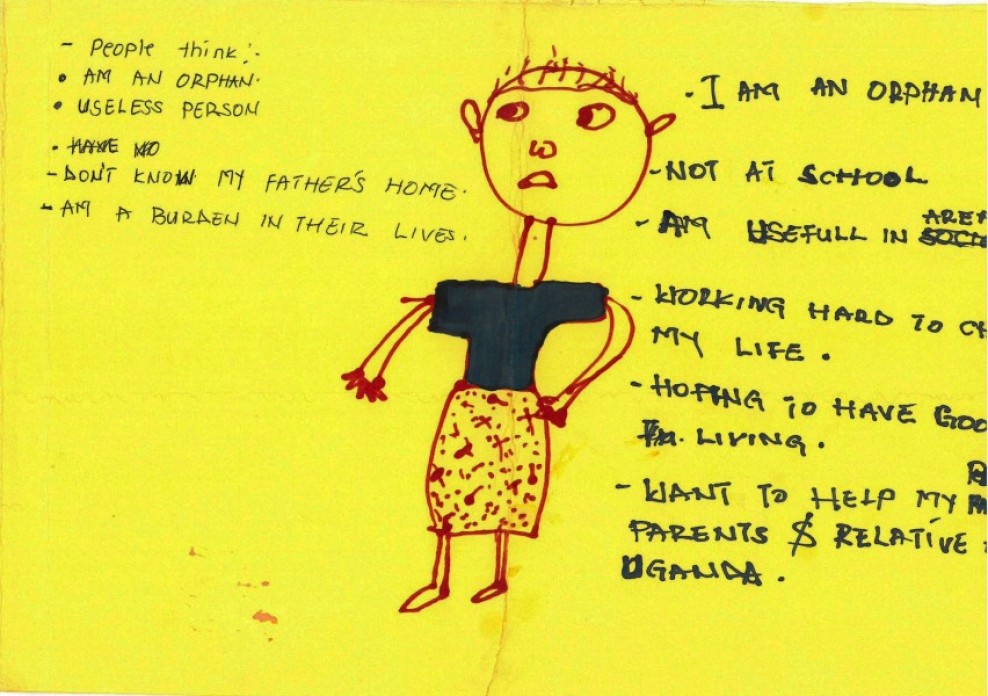 - People think:-
• AM AN ORPHAN.
• USELESS PERSON
• HAVE NO
- DON'T KNOW MY FATHER'S HOME.
- AM A BURDEN IN THEIR LIVES.
• I AM AN ORPHAN
- NOT AT SCHOOL
AREA
- AM USEFULL IN SOCI
- WORKING HARD TO CH
MY LIFE.
- HOPING TO HAVE GOO
LIVING.
- WANT TO HELP MY
PARENTS & RELATIVE
UGANDA.